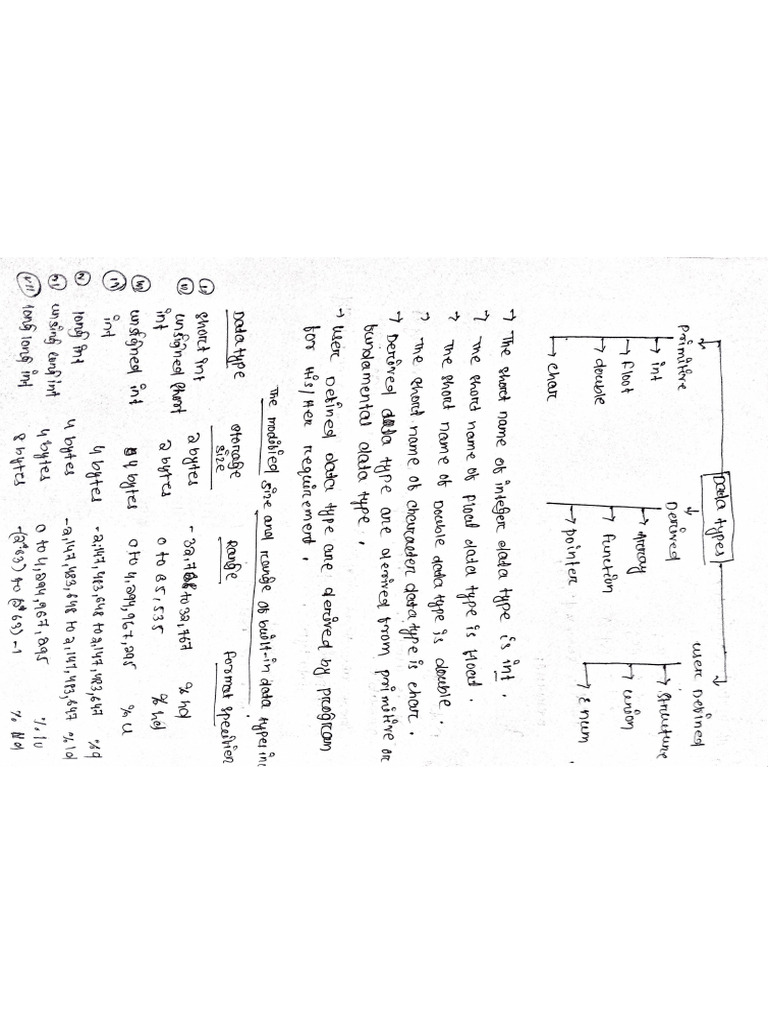 Data types
Primitive Derived User Defined
→ int → Array → structure
→ float → function → union
→ double → pointer → Enum
→ char
→ The short name of integer data type is int.
→ The short name of float data type is float.
→ The short name of Double data type is double.
→ The short name of character data type is char.
→ Derived data type are derived from primitive or
fundamental data type.
→ User Defined data type are derived by program
for His/Her requirement.
The modified size and range of built-in data types in
Data type storage Range format specifier
size
(i) short int 2 bytes -32,768 to 32,767 % hd
(ii) unsigned short 2 bytes 0 to 65,535 % hd
int
unsigned int 4 bytes 0 to 4,294,967,295 % u
(iv) int 4 bytes -2,147,483,648 to 2,147,483,647 %d
long int 4 bytes -2,147,483,648 to 2,147,483,647 %ld
unsing long int 4 bytes 0 to 4,294,967,295 %lu
(vii) long long int 8 bytes -(2^63) to (2^63)-1 % lld